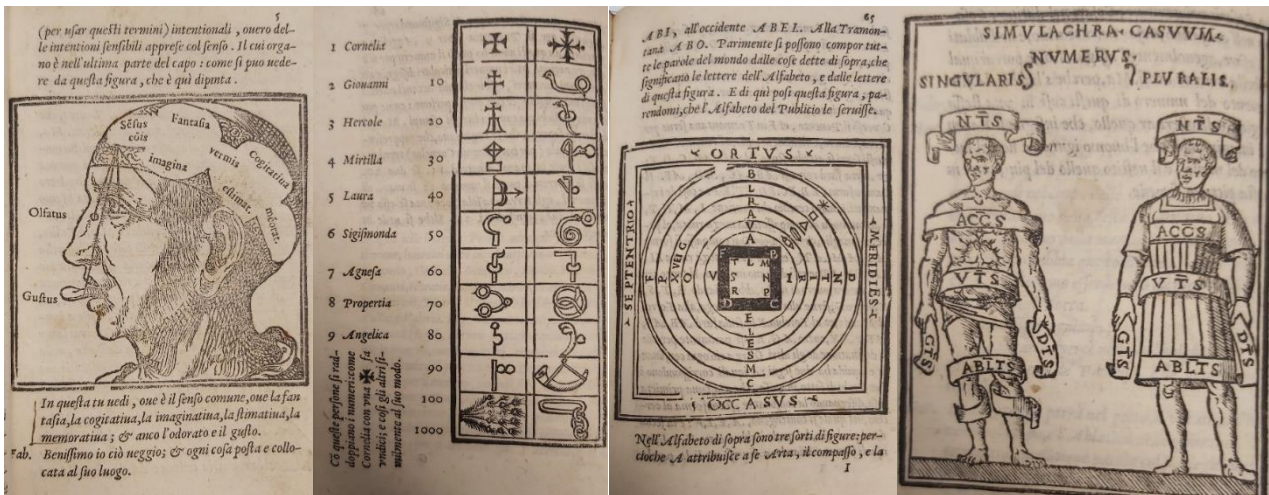 5
(per uſar queſti termini) intentionali, ouero del-
le intentioni ſenſibili appreſe col ſenſo. Il cui orga-
no è nell'ultima parte del capo: come ſi puo uede-
re da queſta figura, che è quì dipinta.
Sẽſus
cõis
Fantaſia
imagina
vermis
Cogitatiua
eſtimat.
mẽorat.
Olfatus
Guſtus
In queſta tu uedi, oue è il ſenſo comune, oue la fan
taſia, la cogitatiua, la imaginatiua, la ſtimatiua, la
memoratiua; & anco l'odorato e il guſto.
Fab. Beniſſimo io ciò ueggio; & ogni coſa poſta e collo-
cata al ſuo luogo.
1 Cornelia
2 Giouanni 10
3 Hercole 20
4 Mirtilla 30
5 Laura 40
6 Sigiſmonda 50
7 Agneſa 60
8 Propertia 70
9 Angelica 80
90
100
1000
Cõ queſte perſone ſi rad-
doppiano i numeri: come
Cornelia con vna ✠ fa
vndici; e coſi gli altri ſi-
milmente al ſuo modo.
65
ABI, all'occidente ABEL. Alla Tramon-
tana ABO. Parimente ſi poſſono compor tut-
te le parole del mondo dalle coſe dette di ſopra, che
ſignificano le lettere dell'Alfabeto, e dalle lettere
di queſta figura. E di quì poſi queſta figura, pa-
rendomi, che l'Alfabeto del Publicio le ſeruiſſe.
ORTVS
SEPTENTRIO
MERIDIES
OCCASVS
B L R A V A
E L E S M C
Nell'Alfabeto di ſopra ſono tre ſorti di figure: per-
cioche A attribuiſce a ſe Arta, il compaſſo, e la
I
SIMVLACHRA CASVVM
NVMERVS
SINGVLARIS PLVRALIS
NT̃S
ACC̃S
VT̃S
GT̃S
DT̃S
ABLT̃S
NT̃S
ACC̃S
VT̃S
GT̃S
DT̃S
ABLT̃S